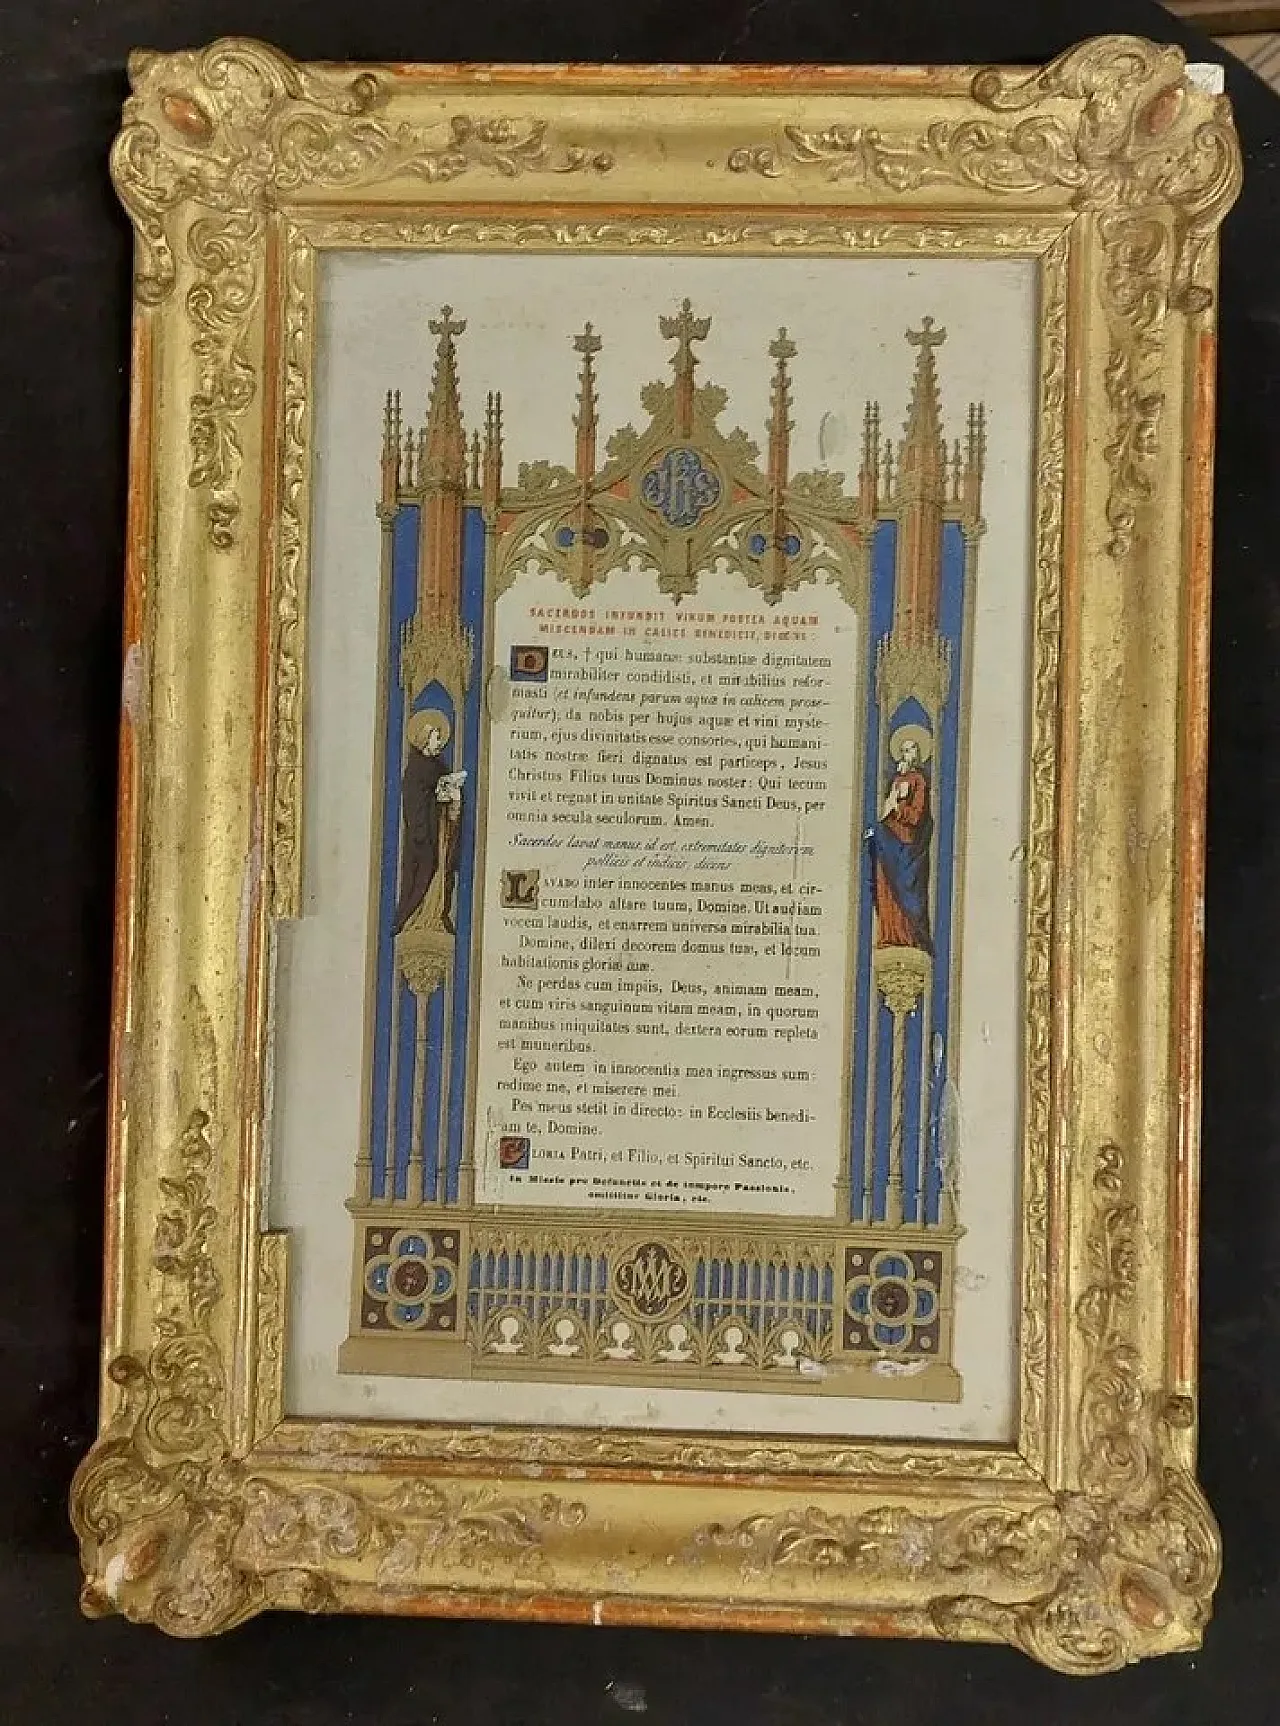 IHS
SACERDOS INFUNDIT VINUM POSTEA AQUAM
MISCENDAM IN CALICE BENEDICIT, DICENS :
DEUS, † qui humanæ substantiæ dignitatem
mirabiliter condidisti, et mirabilius refor-
masti (et infundens parum aquæ in calicem prose-
quitur); da nobis per hujus aquæ et vini myste-
rium, ejus divinitatis esse consortes, qui humani-
tatis nostræ fieri dignatus est particeps, Jesus
Christus Filius tuus Dominus noster: Qui tecum
vivit et regnat in unitate Spiritus Sancti Deus, per
omnia secula seculorum. Amen.
Sacerdos lavat manus, id est, extremitates digitorum
pollicis et indicis, dicens
LAVABO inter innocentes manus meas, et cir-
cumdabo altare tuum, Domine. Ut audiam
vocem laudis, et enarrem universa mirabilia tua.
Domine, dilexi decorem domus tuæ, et locum
habitationis gloriæ tuæ.
Ne perdas cum impiis, Deus, animam meam,
et cum viris sanguinum vitam meam, in quorum
manibus iniquitates sunt, dextera eorum repleta
est muneribus.
Ego autem in innocentia mea ingressus sum:
redime me, et miserere mei.
Pes meus stetit in directo: in Ecclesiis benedi-
cam te, Domine.
GLORIA Patri, et Filio, et Spiritui Sancto, etc.
In Missis pro Defunctis et de tempore Passionis,
omittitur Gloria, etc.